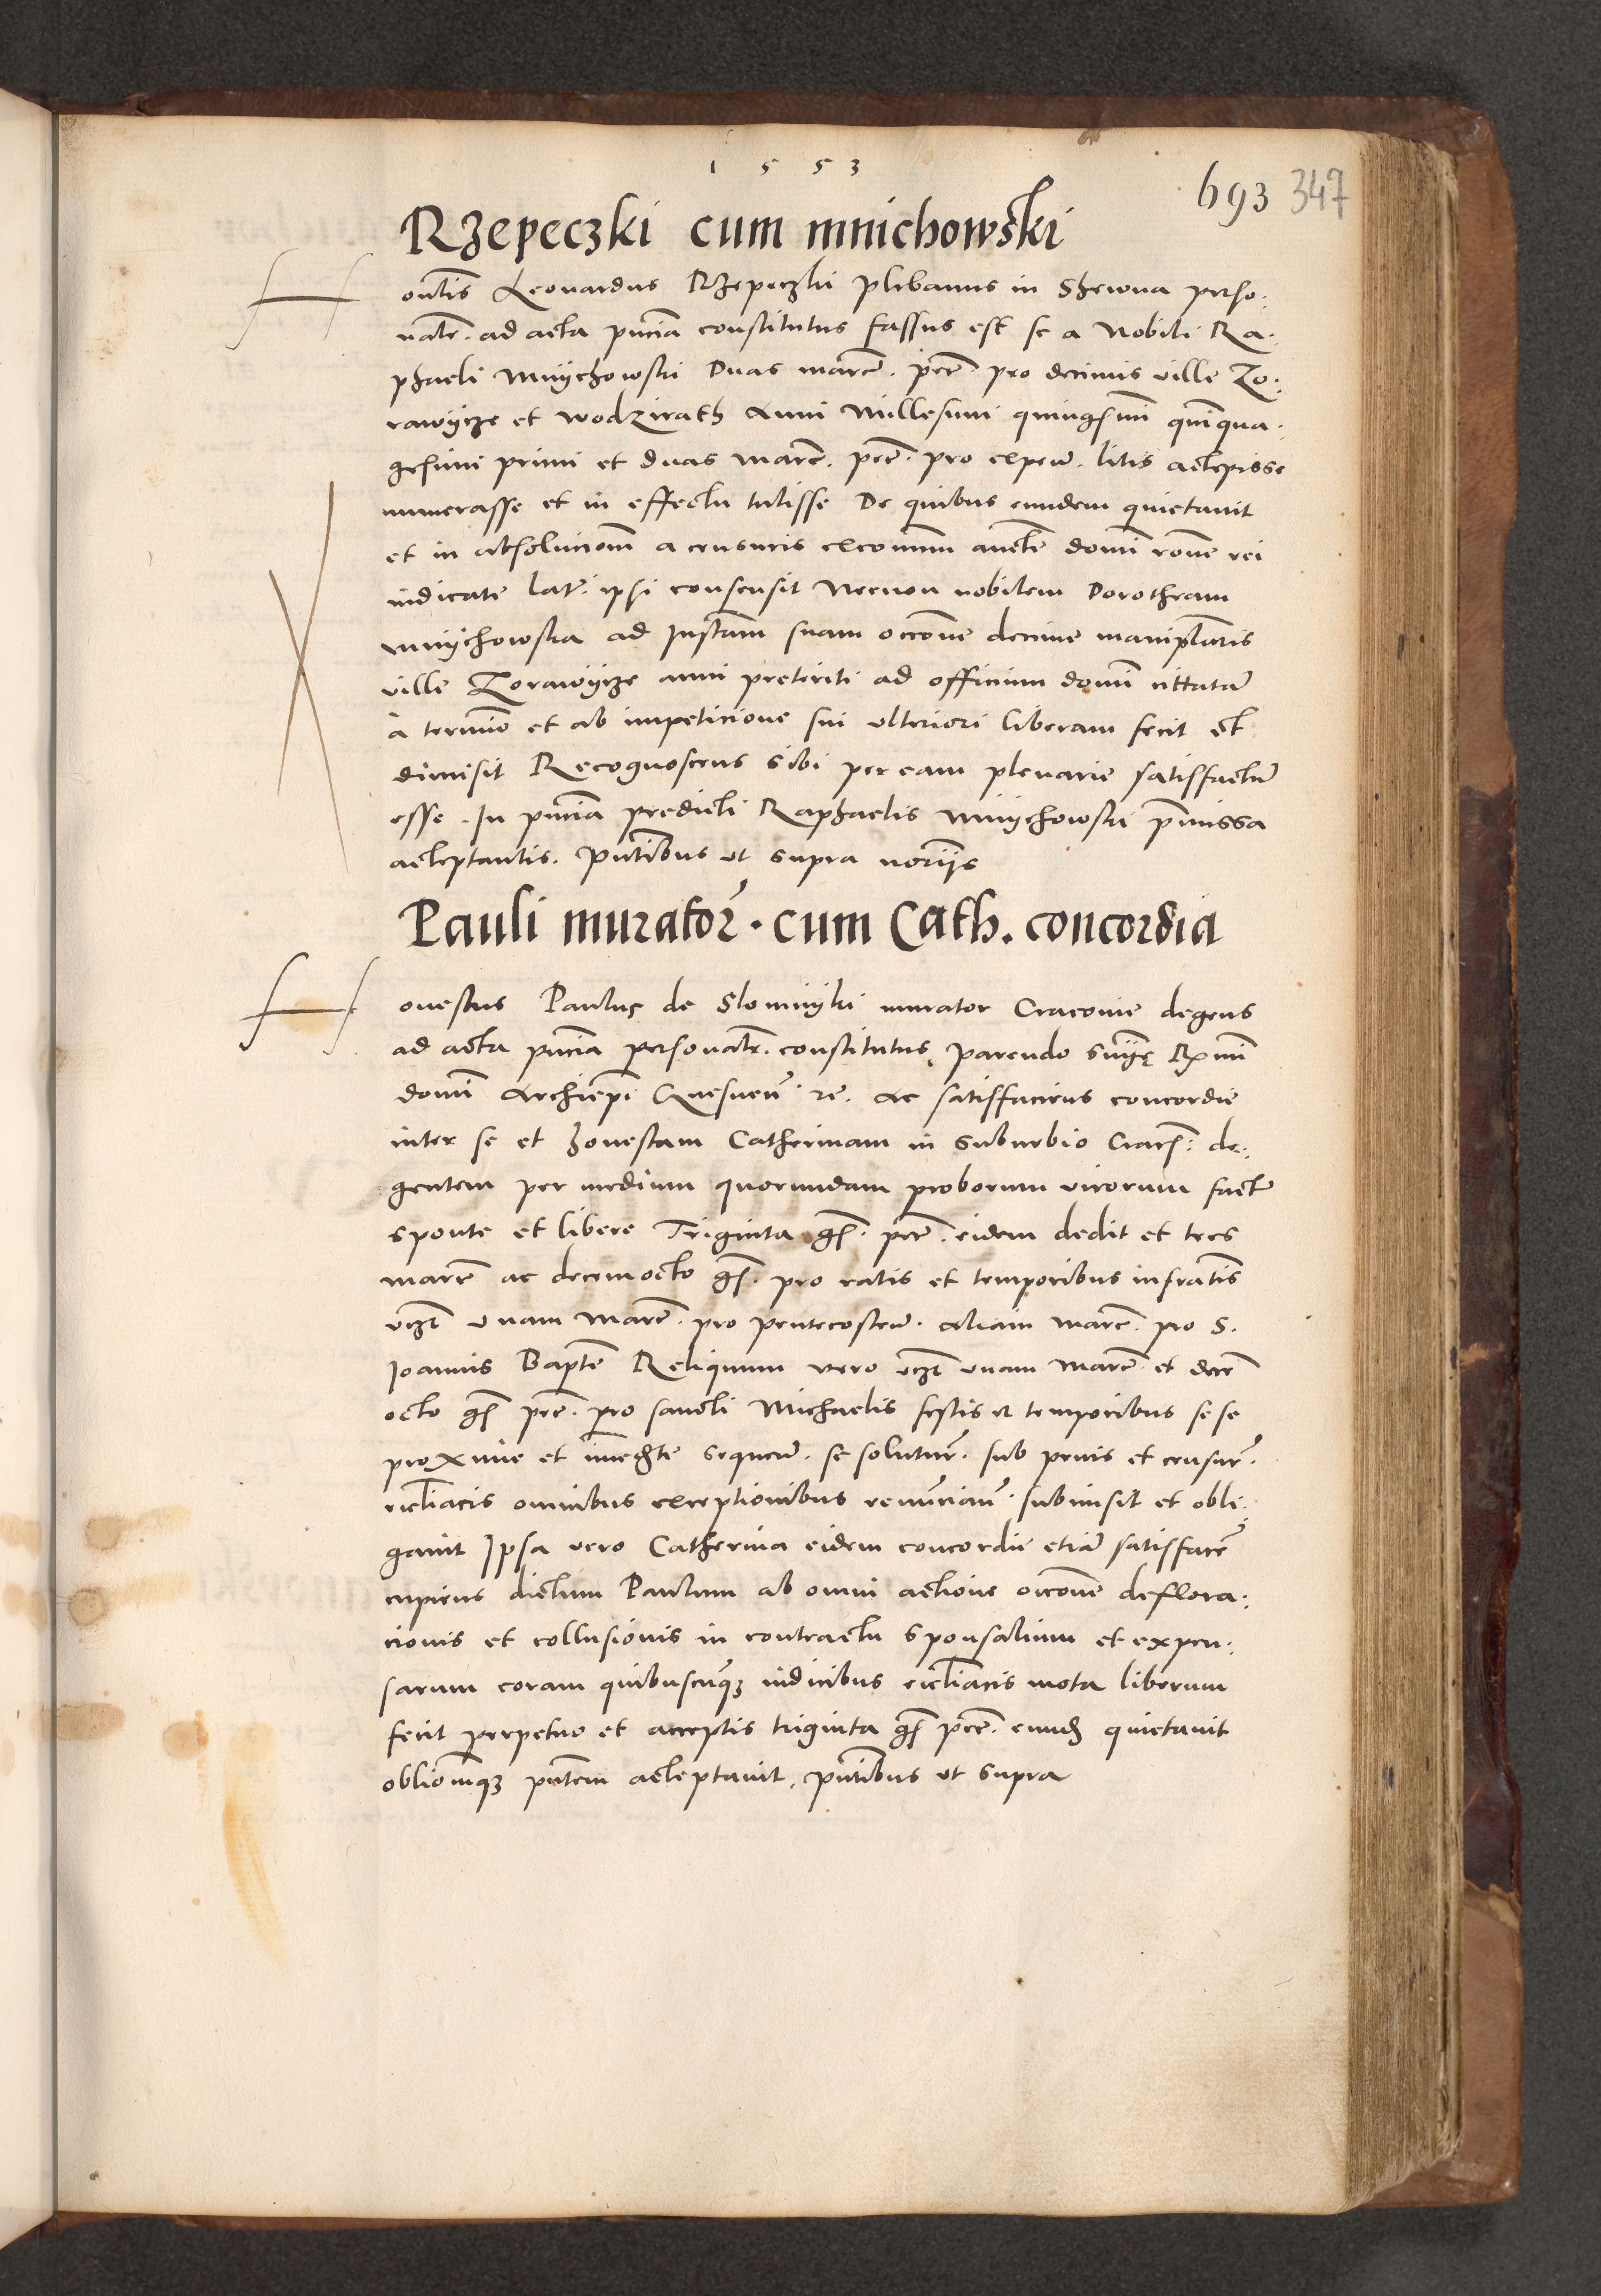 1553
693 347
Rzepeczki cum mnichowski
H onlis Leonardus Rzepeczki plebanus in perso.
nalr. ad acta pncia constitutus fassus est se a Nobili Ra.
phaeli Mniychowski Duas marc. pec. pro decimis ville Zo.
rawÿcze et Wodzirath Anni Millesimi quingsimi quinqua.
gesimi primi et duas marc. pec. pro expen. litis accepisse
numerasse et in effectu tulisse De quibus eundem quietavit
et in absolucionem a censuris excomum domi rone rei
iudicate latis ipsi consensit Necnon nobilem Dorotheam
Mniychowska ad Instam suam occone decime manipularis
ville Zorawÿcze anni preteriti ad officium domi cittatam
a termino et ab impeticione sui ulteriori liberam fecit et
dimisit Recognoscens sibi per eam plenarie satisfactum
esse. In pncia predicti Raphaelis Mniychowski pmissa
acceptantis. Pntibus ut supra noriis
Pauli murator. cum Cath. concordia
H onestus Paulus de Slomniki murator Cracovie degens
ad acta pncia personalr. constitutus, parendo Rmi
domi Archiepi Gnesnen. re. Ac satisfaciens concordie
inter se et honestam Catherinam in suburbio Crac. de.
gentem per medium quorundam proborum virorum facte
sponte et libere Triginta gs. pec. eidem dedit et tres
marc ac decemocto gs. pro ratis et temporibus infratis
vczt unam marc. pro Pentecosten. aliam marc. pro S.
Joannis Bapte Reliquum vero vczt unam marc et dece
octo gs pec. pro sancti Michaelis festis et temporibus sese
proxime et immedte sequen. se soluturum. sub penis et censur.
eccliacis omnibus exceptionibus renuncian. submisit et obli.
gavit Ipsa vero Catherina eidem concordie etiam satisfacere
cupiens dictum Paulum ab omni actione occone deflora.
cionis et collusionis in contractu sponsalium et expen.
sarum coram quibuscumque iudicibus eccliacis mota liberum
fecit perpetuo et acceptis triginta gs pec. eund quietavit
obliomque pntem acceptavit. Pntibus ut supra